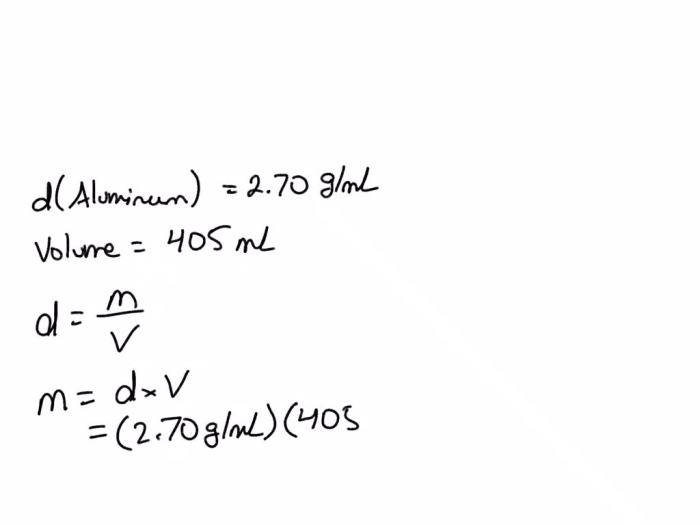 d(Aluminum) = 2.70 g/mL
Volume = 405 mL
d = m/V
m = d × V
= (2.70 g/mL) (405